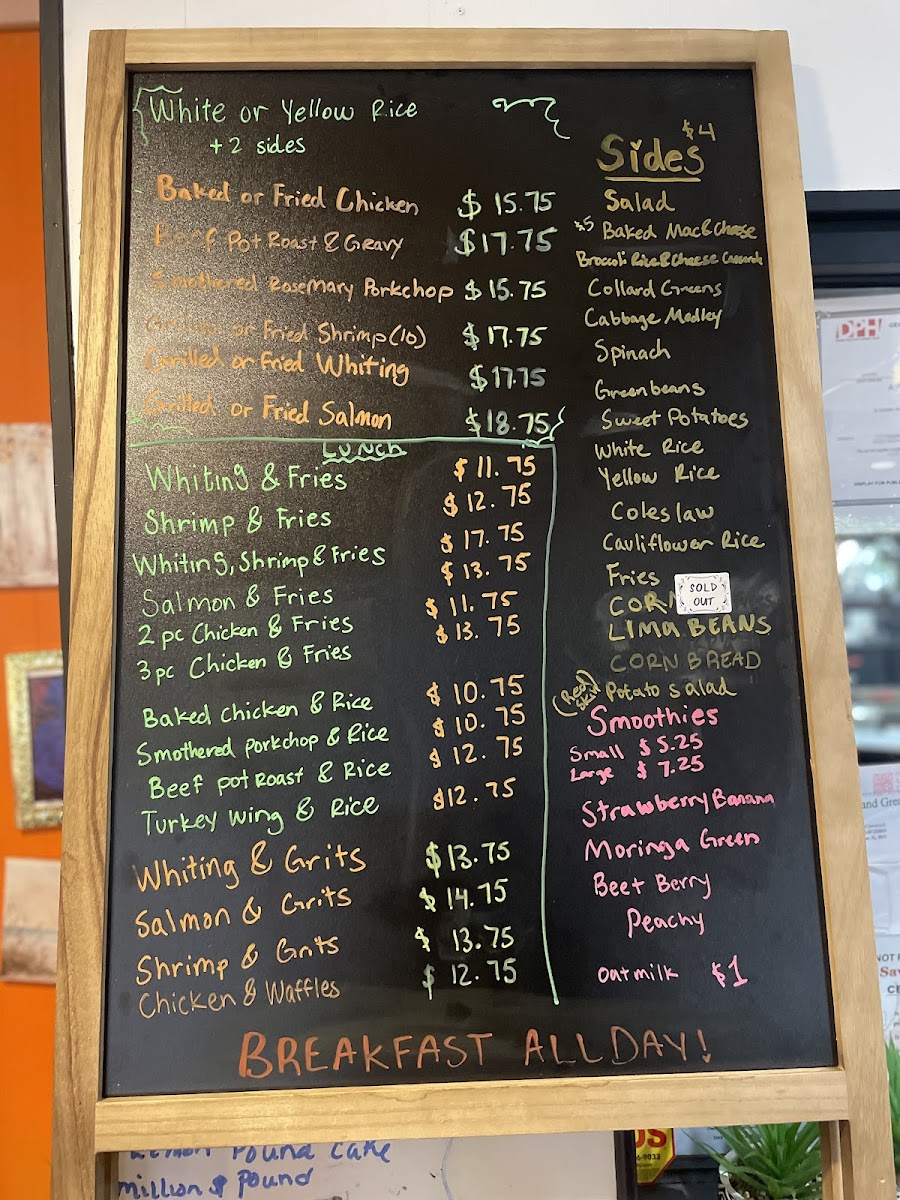 White or Yellow Rice
+ 2 sides
Baked or Fried Chicken $ 15.75
Beef Pot Roast & Gravy $17.75
Smothered Rosemary Porkchop $ 15.75
or Fried Shrimp (10) $ 17.75
Grilled or Fried Whiting $17.75
Grilled or Fried Salmon $18.75
LUNCH
Whiting & Fries $ 11.75
Shrimp & Fries $ 12.75
Whiting, Shrimp & Fries $ 17.75
Salmon & Fries $ 13.75
2 pc Chicken & Fries $ 11.75
3 pc Chicken & Fries $ 13.75
Baked Chicken & Rice $ 10.75
Smothered porkchop & Rice $ 10.75
Beef pot Roast & Rice $ 12.75
Turkey Wing & Rice $12.75
Whiting & Grits $13.75
Salmon & Grits $ 14.75
Shrimp & Grits $ 13.75
Chicken & Waffles $ 12.75
$4
Sides
Salad
$5 Baked Mac & Cheese
Broccoli Rice & Cheese
Collard Greens
Cabbage Medley
Spinach
Greenbeans
Sweet Potatoes
White Rice
Yellow Rice
Coleslaw
Cauliflower Rice
Fries
CORN
SOLD
OUT
LIMA BEANS
CORN BREAD
(Red Skin) Potato Salad
Smoothies
Small $ 5.25
Large $ 7.25
Strawberry Banana
Moringa Green
Beet Berry
Peachy
Oatmilk $1
BREAKFAST ALL DAY!
Lemon Pound Cake
million $ Pound
DPH